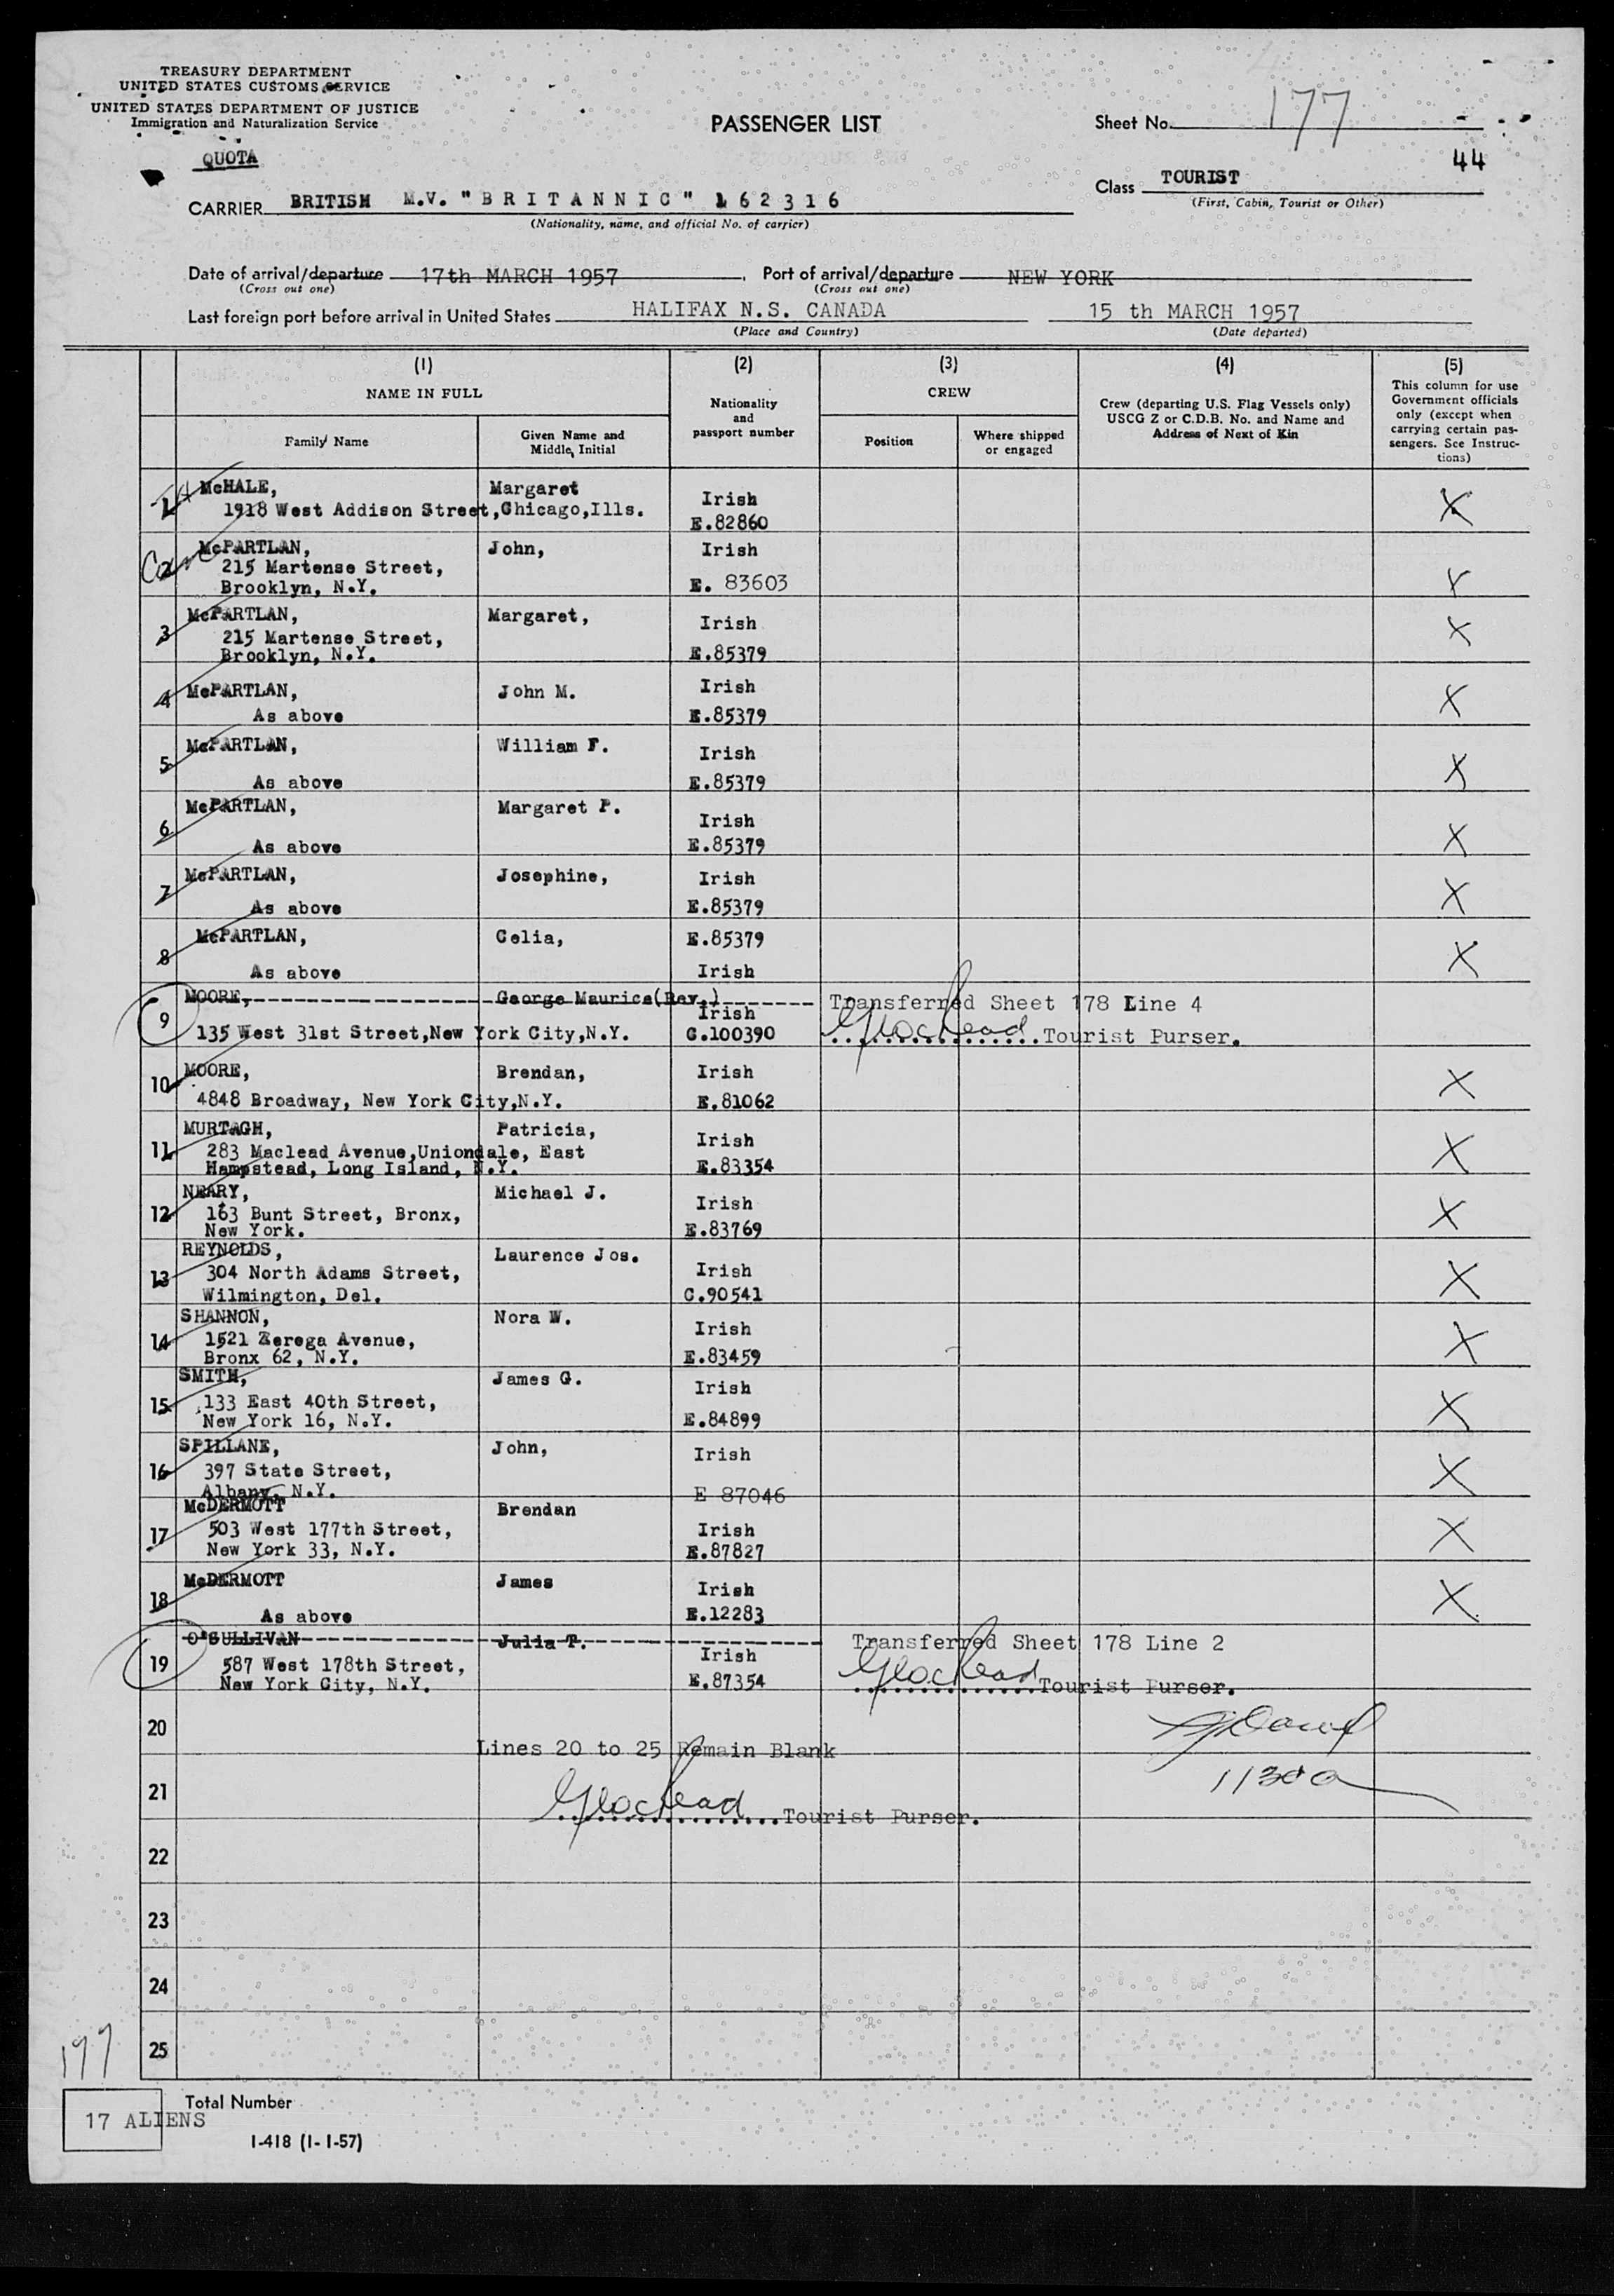 TREASURY DEPARTMENT
UNITED STATES CUSTOMS SERVICE
UNITED STATES DEPARTMENT OF JUSTICE
Immigration and Naturalization Service
QUOTA
PASSENGER LIST
Sheet No. 177
44
Class TOURIST
(First, Cabin, Tourist or Other)
CARRIER BRITISH M.V. "BRITANNIC" 162316
(Nationality, name, and official No. of carrier)
Date of arrival/departure 17th MARCH 1957, Port of arrival/departure NEW YORK
(Cross out one) (Cross out one)
Last foreign port before arrival in United States HALIFAX N.S. CANADA 15 th MARCH 1957
(Place and Country) (Date departed)
(1) (2) (3) (4) (5)
NAME IN FULL
Family Name
Given Name and Middle Initial
Nationality and passport number
CREW
Position
Where shipped or engaged
Crew (departing U.S. Flag Vessels only) USCG Z or C.D.B. No. and Name and Address of Next of Kin
This column for use Government officials only (except when carrying certain passengers. See Instructions)
1 McHALE, Margaret Irish X
1918 West Addison Street, Chicago, Ills. E.82860
2 McPARTLAN, John, Irish X
215 Martense Street,
Brooklyn, N.Y. E. 83603
3 McPARTLAN, Margaret, Irish X
215 Martense Street,
Brooklyn, N.Y. E.85379
4 McPARTLAN, John M. Irish X
As above E.85379
5 McPARTLAN, William F. Irish X
As above E.85379
6 McPARTLAN, Margaret P. Irish X
As above E.85379
7 McPARTLAN, Josephine, Irish X
As above E.85379
8 McPARTLAN, Celia, E.85379 X
As above Irish
9 MOORE, George Maurice(Rev.) Irish Transferred Sheet 178 Line 4
135 West 31st Street, New York City, N.Y. G.100390 Tourist Purser.
10 MOORE, Brendan, Irish X
4848 Broadway, New York City, N.Y. E.81062
11 MURTAGH, Patricia, Irish X
283 Maclead Avenue, Uniondale, East
Hampstead, Long Island, N.Y. E.83354
12 NEARY, Michael J. Irish X
163 Bunt Street, Bronx,
New York. E.83769
13 REYNOLDS, Laurence Jos. Irish X
304 North Adams Street,
Wilmington, Del. C.90541
14 SHANNON, Nora W. Irish X
1521 Zerega Avenue,
Bronx 62, N.Y. E.83459
15 SMITH, James G. Irish X
133 East 40th Street,
New York 16, N.Y. E.84899
16 SPILLANE, John, Irish X
397 State Street,
Albany, N.Y. E 87046
17 McDERMOTT Brendan Irish X
503 West 177th Street,
New York 33, N.Y. E.87827
18 McDERMOTT James Irish X
As above E.12283
19 O'SULLIVAN Julia T. Irish Transferred Sheet 178 Line 2
587 West 178th Street,
New York City, N.Y. E.87354 Tourist Purser.
20
Lines 20 to 25 Remain Blank
21 1130a
Tourist Purser.
22
23
24
25
177
Total Number
17 ALIENS
I-418 (1-1-57)